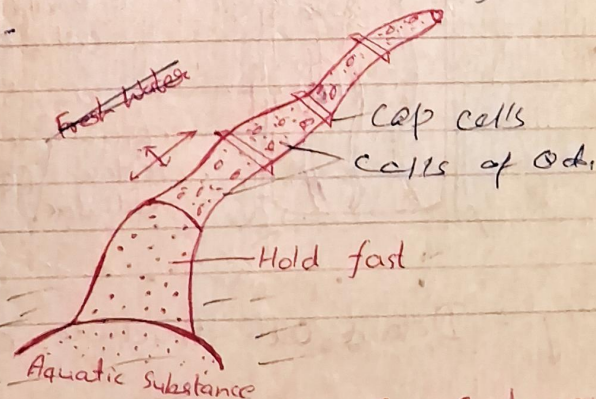 Fresh Water
Cap cells
Cells of Od.
Hold fast
Aquatic Substance